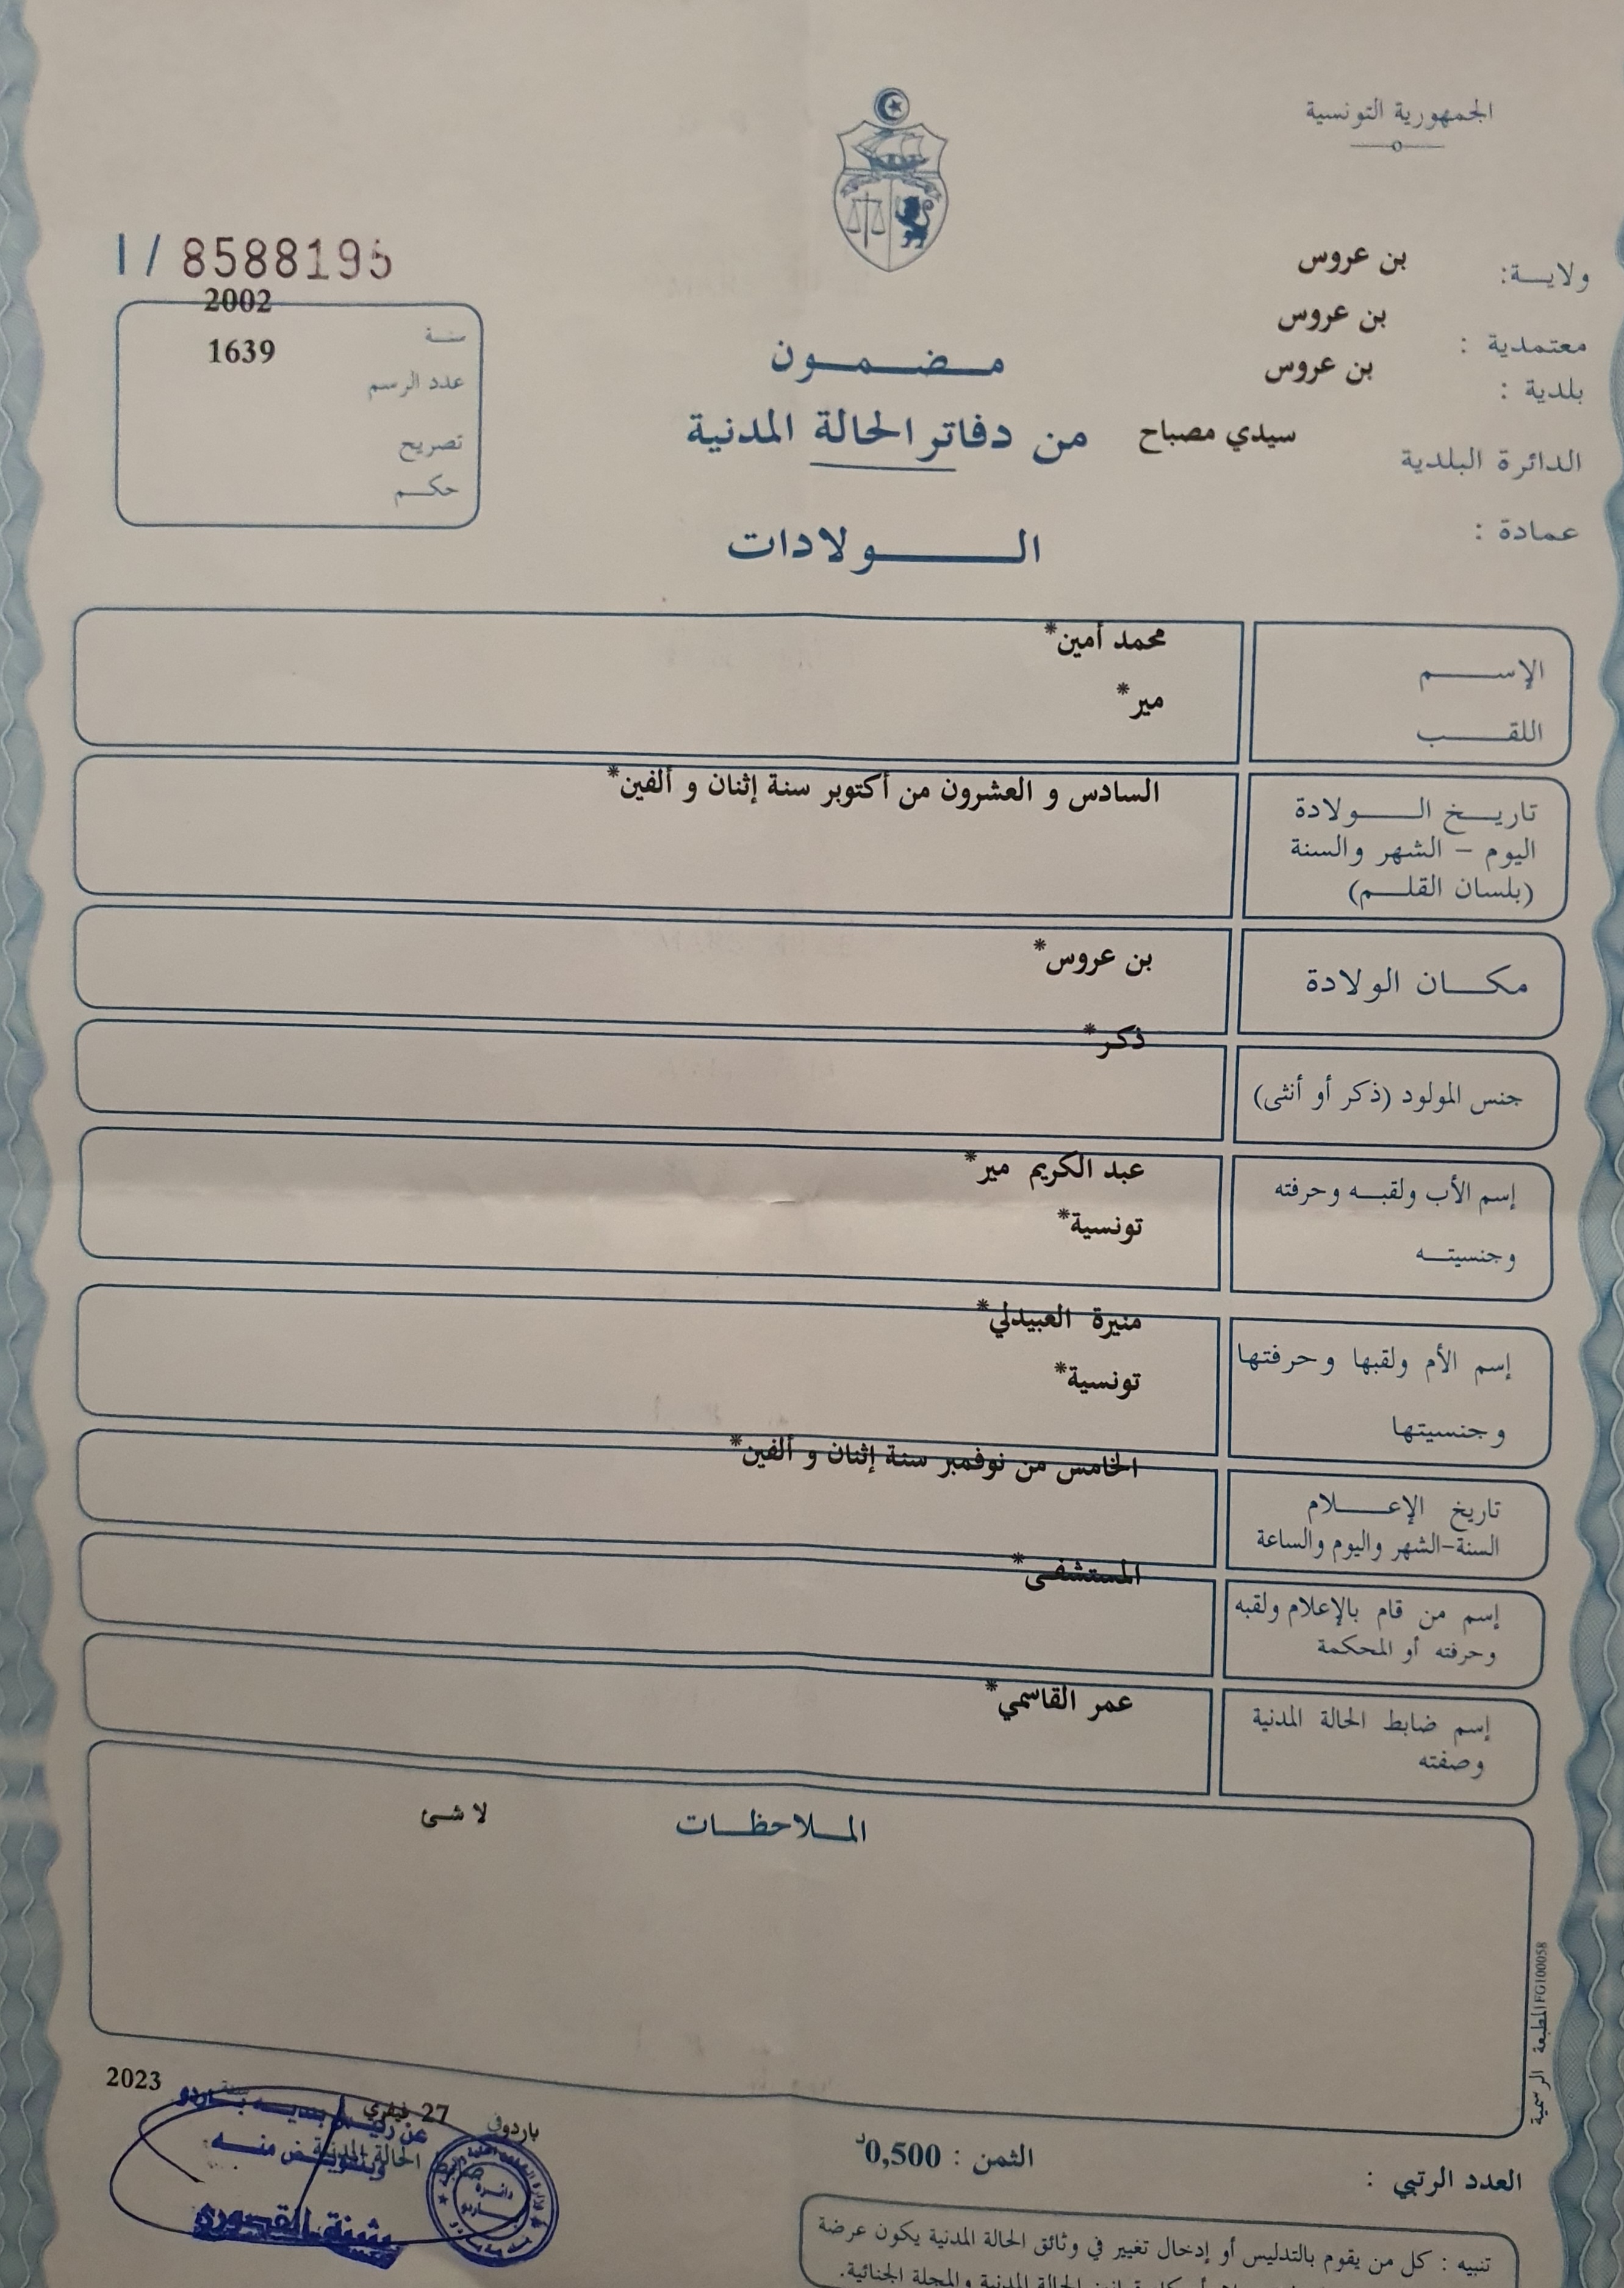 الجمهورية التونسية
ولايـة: بن عروس
معتمدية : بن عروس
بلدية : بن عروس
الدائرة البلدية سيدي مصباح
عمادة :
مـضـمـون
من دفاتر الحالة المدنية
الـولادات
I / 8588195
سنـة 2002
عدد الرسم 1639
تصريح
حكـم
الإسـم محمد أمين*
اللقـب مير*
تاريـخ الـولادة السادس و العشرون من أكتوبر سنة إثنان و ألفين*
اليوم – الشهر والسنة
(بلسان القلـم)
مكـان الولادة بن عروس*
جنس المولود (ذكر أو أنثى) ذكر*
إسم الأب ولقبـه وحرفته عبد الكريم مير*
وجنسيتـه تونسية*
إسم الأم ولقبها وحرفتها منيرة العبيدلي*
وجنسيتها تونسية*
تاريخ الإعـلام الخامس من نوفمبر سنة إثنان و ألفين*
السنة-الشهر واليوم والساعة
إسم من قام بالإعلام ولقبه المستشفى*
وحرفته أو المحكمة
إسم ضابط الحالة المدنية عمر القاسمي*
وصفته
المـلاحظـات لا شئ
المطبعة الرسمية FG100058
باردو في 27 فيفري سنة 2023
ضابط الحالة المدنية
عن رئيس بلديـة بـاردو
وبتفويـض منـه
بثينة القصوري
دائـرة
بـاردو
الثمن : 0,500د
العدد الرتبي :
تنبيه : كل من يقوم بالتدليس أو إدخال تغيير في وثائق الحالة المدنية يكون عرضة
الحالة المدنية والمجلة الجنائية.